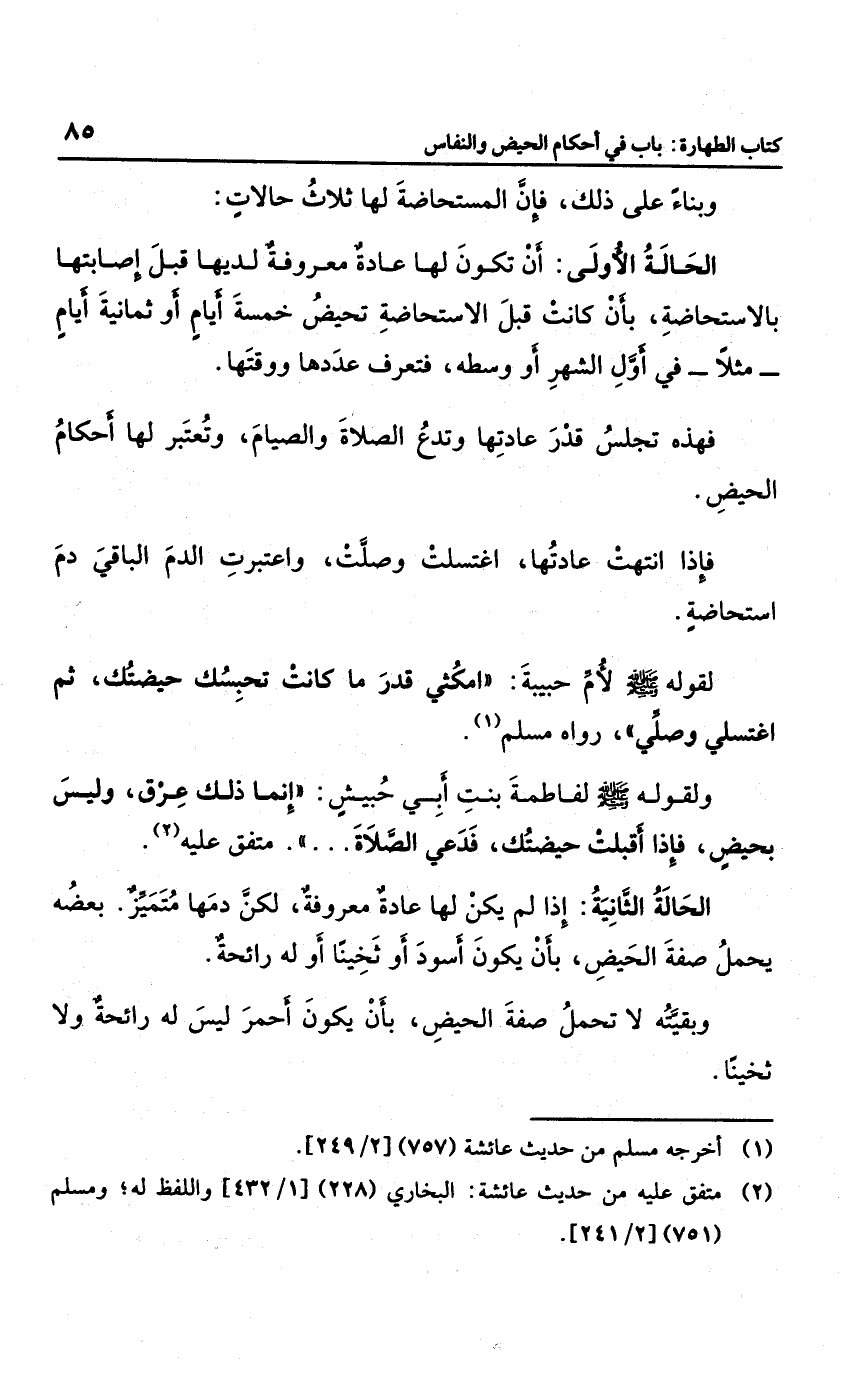 كتاب الطهارة: باب في أحكام الحيض والنفاس ٨٥
وبناءً على ذلك، فإِنَّ المستحاضةَ لها ثلاثُ حالاتٍ:
الحَالَةُ الأُولَى: أَنْ تكونَ لها عادةٌ معروفةٌ لديها قبلَ إِصابتها
بالاستحاضةِ، بأَنْ كانتْ قبلَ الاستحاضةِ تحيضُ خمسةَ أَيامٍ أَو ثمانيةَ أَيامٍ
ـ مثلاً ـ في أَوَّلِ الشهرِ أَو وسطه، فتعرف عدَدها ووقتَها.
فهذه تجلسُ قدْرَ عادتِها وتدعُ الصلاةَ والصيامَ، وتُعتَبر لها أَحكامُ
الحيضِ.
فإِذا انتهتْ عادتُها، اغتسلتْ وصلَّتْ، واعتبرتِ الدمَ الباقيَ دمَ
استحاضةٍ.
لقوله ﷺ لأُمِّ حبيبةَ: «امكُثي قدرَ ما كانتْ تحبِسُك حيضتُك، ثم
اغتسلي وصلِّي»، رواه مسلم(١).
ولقوله ﷺ لفاطمةَ بنتِ أَبِي حُبيشٍ: «إِنما ذلك عِرْق، وليسَ
بحيضٍ، فإِذا أَقبلتْ حيضتُك، فَدَعي الصَّلَاةَ...». متفق عليه(٢).
الحَالَةُ الثَّانِيَةُ: إِذا لم يكنْ لها عادةٌ معروفةٌ، لكنَّ دمَها مُتَمَيِّزٌ. بعضُه
يحملُ صفةَ الحَيضِ، بأَنْ يكونَ أَسودَ أَو ثَخِينًا أَو له رائحةٌ.
وبقيَّتُه لا تحملُ صفةَ الحيضِ، بأَنْ يكونَ أَحمرَ ليسَ له رائحةٌ ولا
ثخينًا.
(١) أخرجه مسلم من حديث عائشة (٧٥٧) [٢٤٩/٢].
(٢) متفق عليه من حديث عائشة: البخاري (٢٢٨) [٤٣٢/١] واللفظ له؛ ومسلم
(٧٥١) [٢٤١/٢].